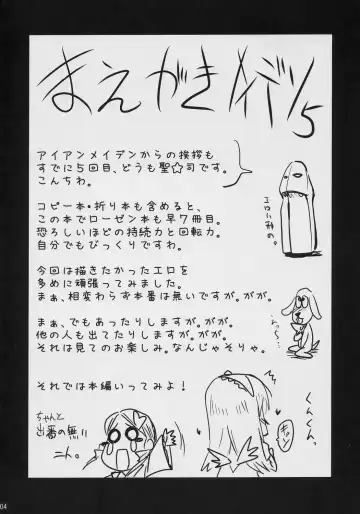 まえがきメイデン5
アイアンメイデンからの挨拶も
すでに5回目、どうも聖☆司です。
こんちわ。
コピー本・折り本も含めると、
この本でローゼン本も早7冊目。
恐ろしいほどの持続力と回転力。
自分でもびっくりですわ。
今回は描きたかったエロを
多めに頑張ってみました。
まぁ、相変わらず本番は無いですが。がが。
まぁ、でもあったりしますが。がが。
他の人も出てたりしますが。がが。
それは見てのお楽しみ。なんじゃそりゃ。
それでは本編いってみよ!
ちゃんと
出番の無い
くんくん。
04